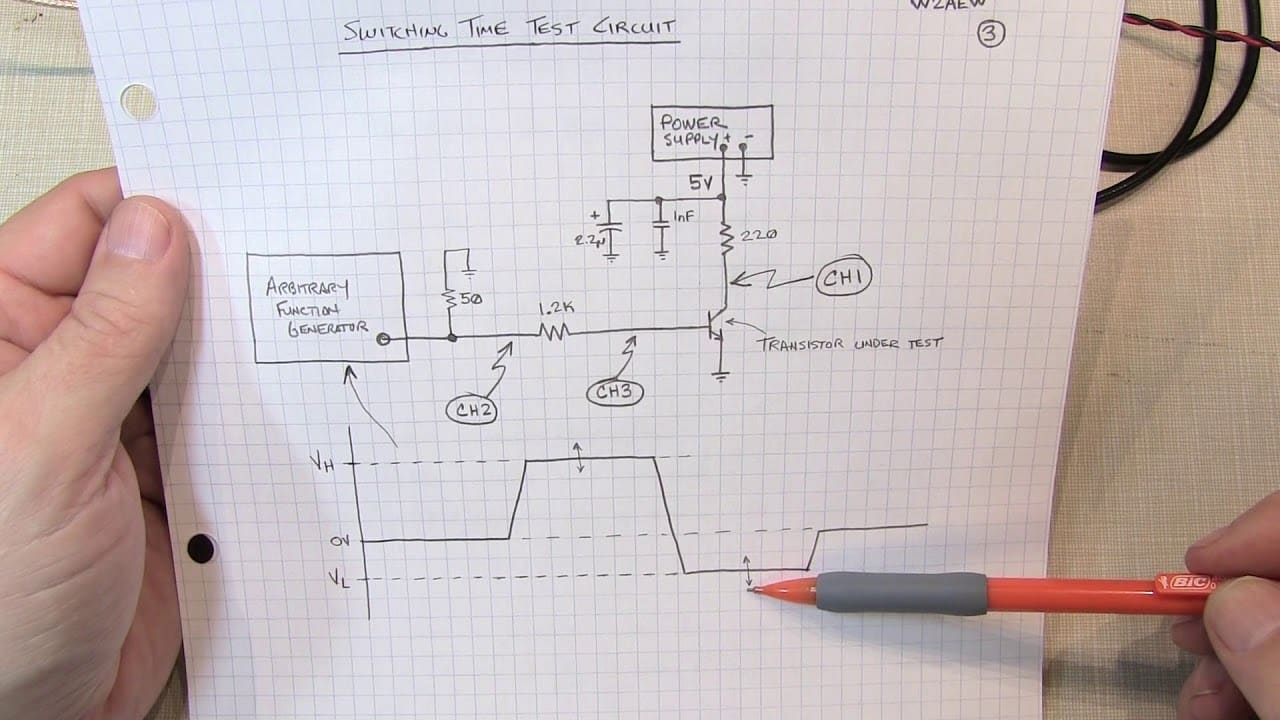 W2AEW
SWITCHING TIME TEST CIRCUIT
3
POWER
SUPPLY + -
5V
+
1nF
2.2µ
220
CH1
ARBITRARY
FUNCTION
GENERATOR
50
1.2K
TRANSISTOR UNDER TEST
CH2
CH3
VH
0V
VL
BIC